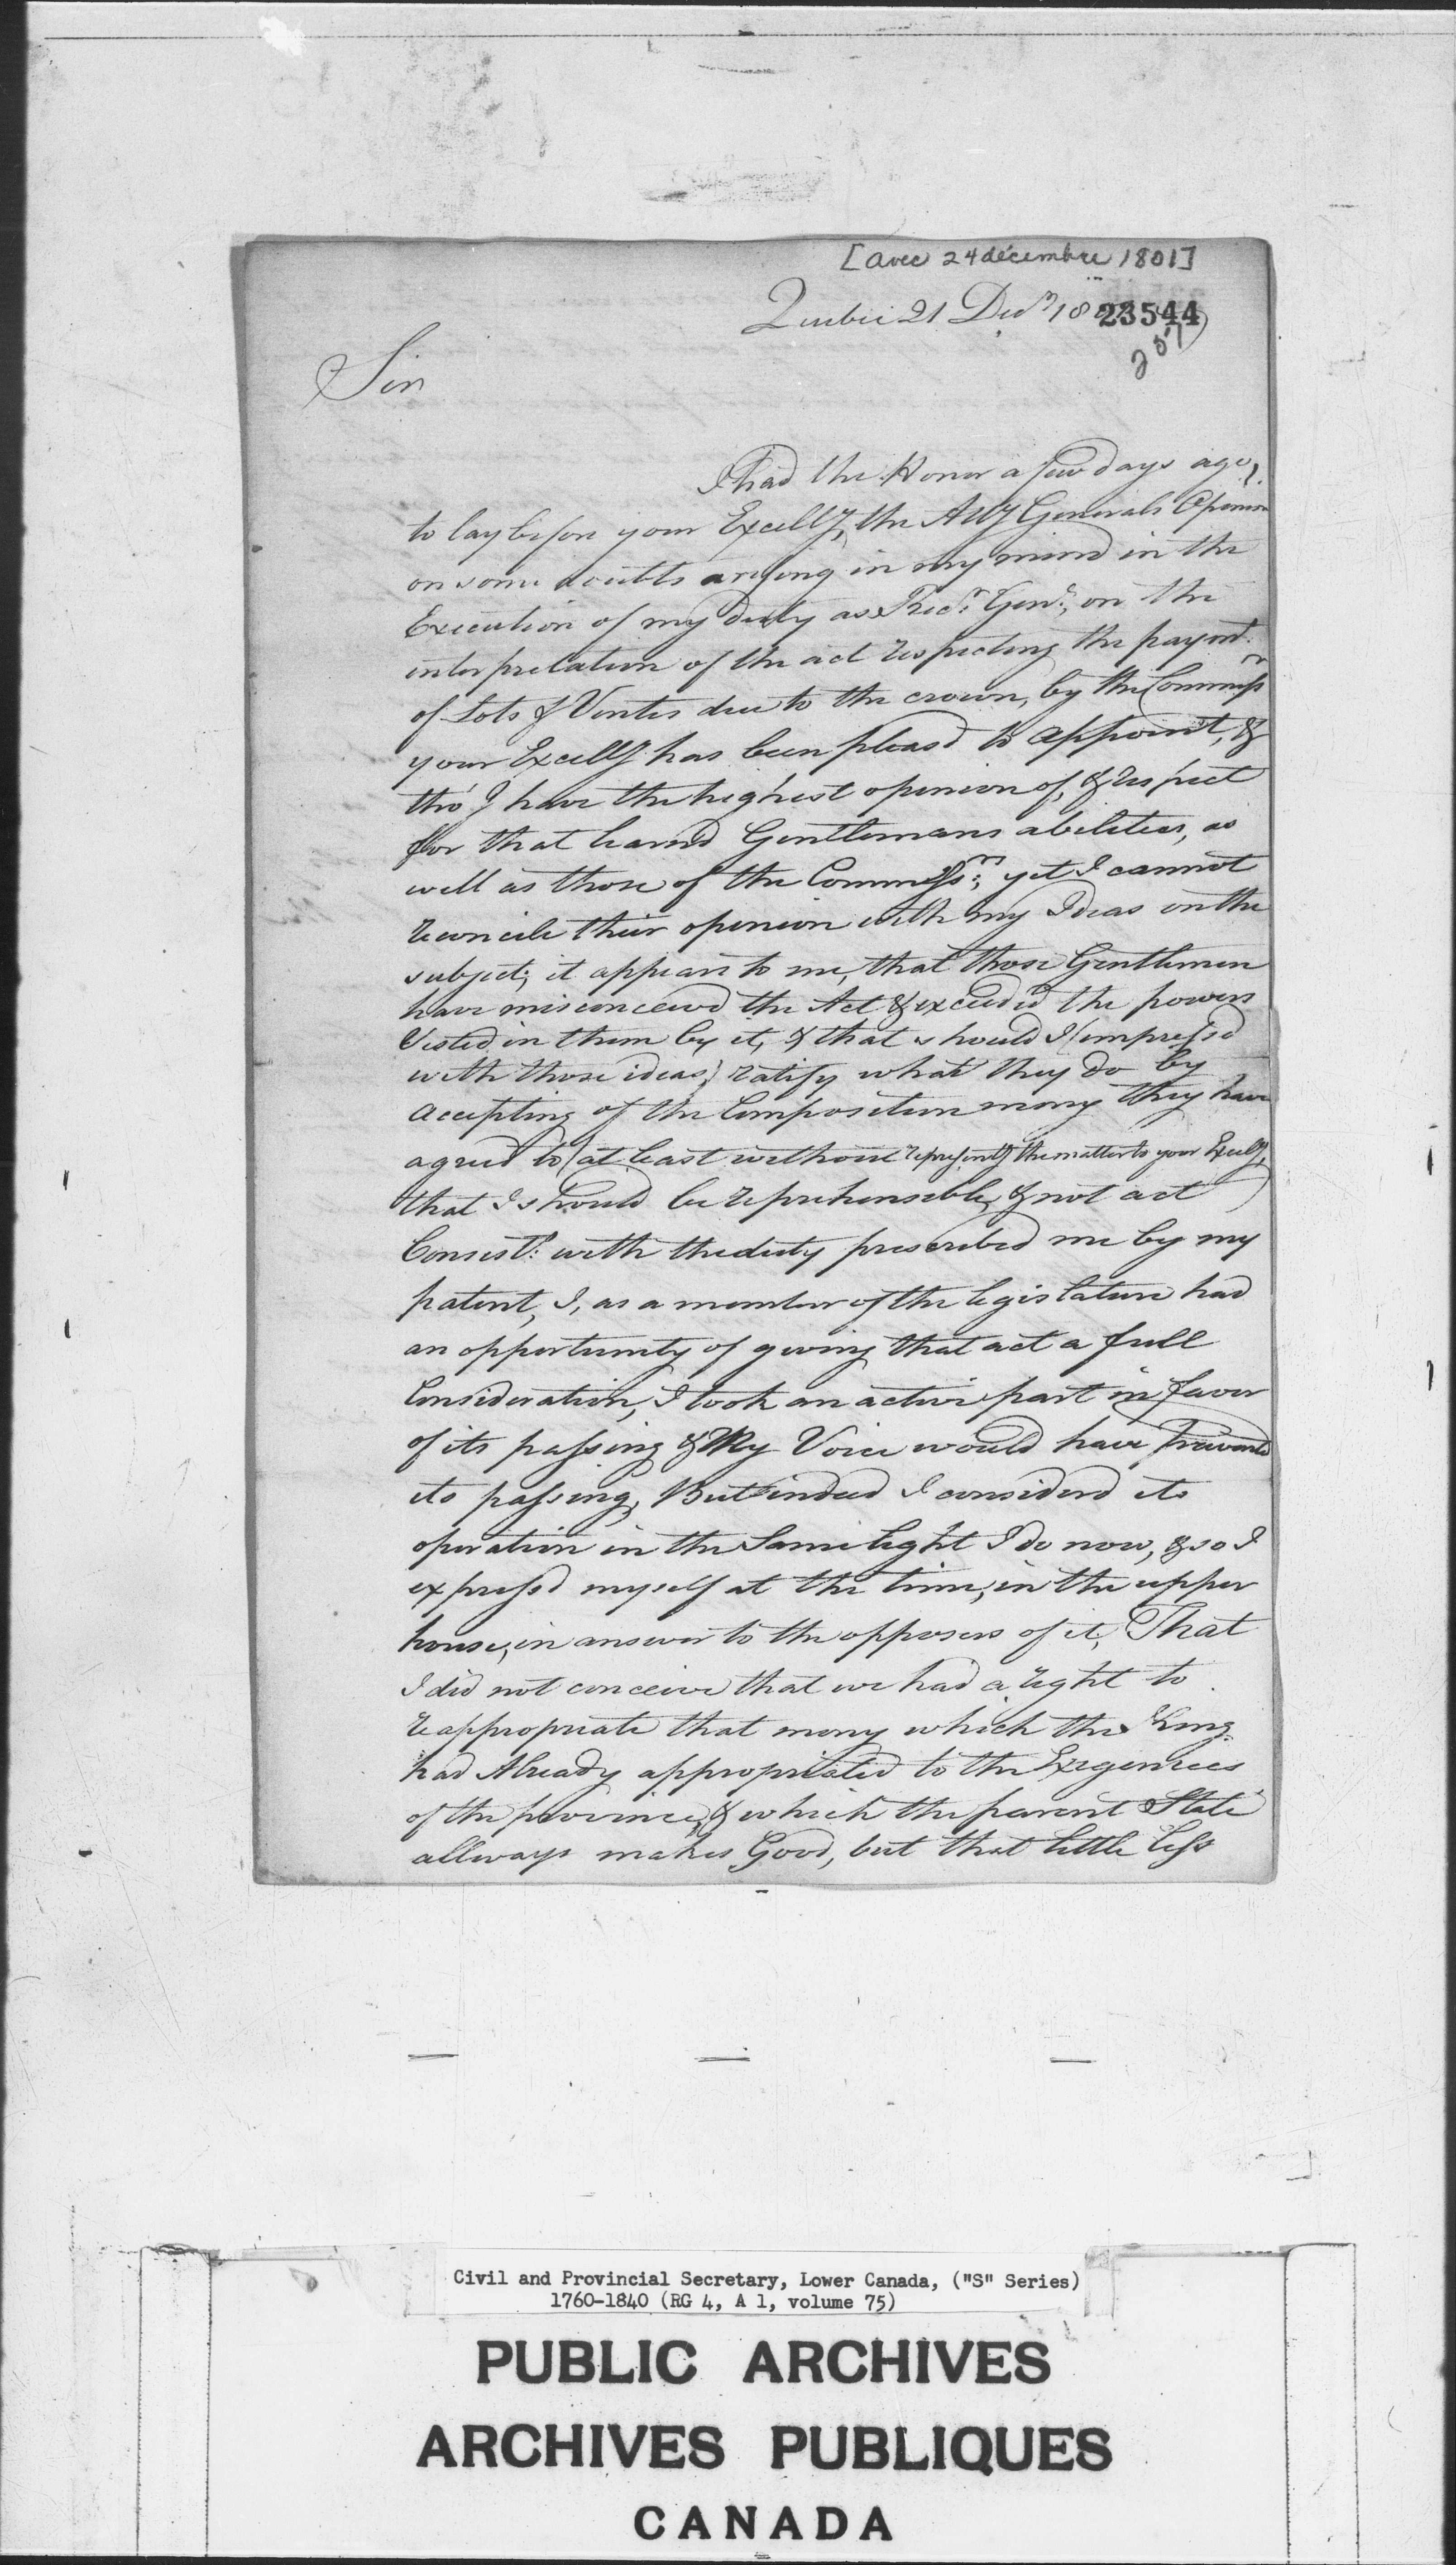 [avec 24 décembre 1801]
Quebec 21 Decr 18
23544
257
Sir
I had the Honor a few days ago,
to lay before your Excelly, the Atty Generals Opinion
on some doubts arising in my mind in the
Execution of my duty as Recr. Genl, on the
interpretation of the act respecting the paymt.
of Lots & Ventes due to the crown, by the Commissrs
your Excelly has been pleasd to appoint, &
tho' I have the highest opinion of, & respect
for that learnd Gentlemans abilities, as
well as those of the Commissrs; yet I cannot
reconcile their opinion with my Ideas on the
subject; it appears to me, that those Gentlemen
have misconceivd the Act & exceeded the powers
Vested in them by it, & that should I (impressd
with those ideas) ratify what they do by
accepting of the Composition mony they have
agreed to (at least without represent'g the matter to your Excelly)
that I should be reprehensible, & not act
Consistt: with the duty prescribed me by my
patent, I, as a member of the legislature had
an opportunity of giving that act a full
Consideration, I took an active part in favor
of its passing & My Voice would have prevented
its passing, But indeed I considerd its
operation in the Same light I do now, & so I
expressd myself at the time, in the upper
house, in answer to the opposers of it, That
I did not conceive that we had a right to
reappropriate that mony which the King
had Already appropriated to the Exigencies
of the province, & which the parent State
allways makes Good, but that little less
Civil and Provincial Secretary, Lower Canada, ("S" Series)
1760-1840 (RG 4, A 1, volume 75)
PUBLIC ARCHIVES
ARCHIVES PUBLIQUES
CANADA